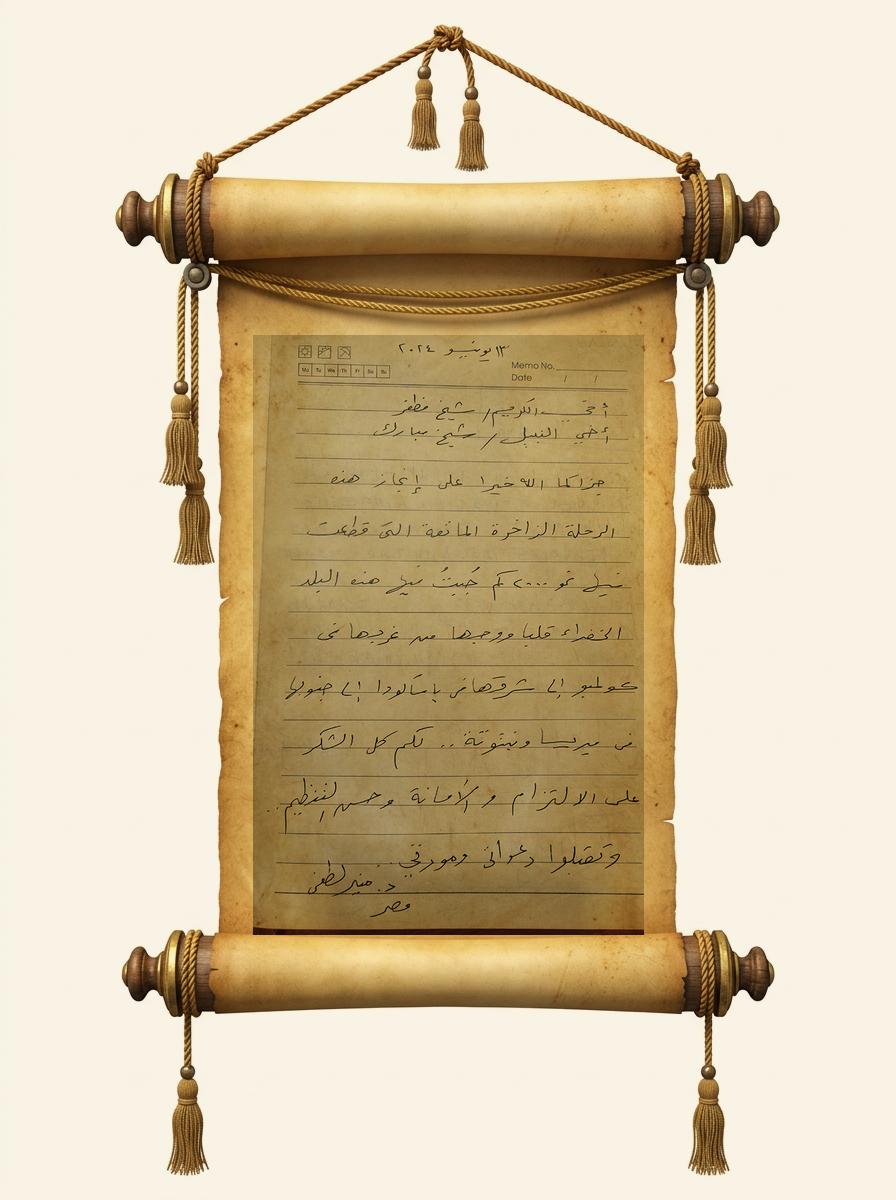 ١٣ يونيو ٢٠٢٤
Memo No.
Mo Tu We Th Fr Sa Su
Date / /
أخي الكريم / شيخ مظفر
أخي النبيل / شيخ مبارك
جزاكما الله خيرا على إنجاز هذه
الرحلة الزاخرة الماتعة التى قطعت
فيها نحو ٢٠٠٠ كم جُبتُ فيها هذه البلد
الخضراء قلبا ووجها من غربها فى
كولمبو إلى شرقها فى باسكودا إلى جنوبها
فى ميريسا ... لكم كل الشكر
على الالتزام والأمانة وحسن التنظيم ..
وتقبلوا دعواتى ومودتي ..
د. منير لطفى
مصر